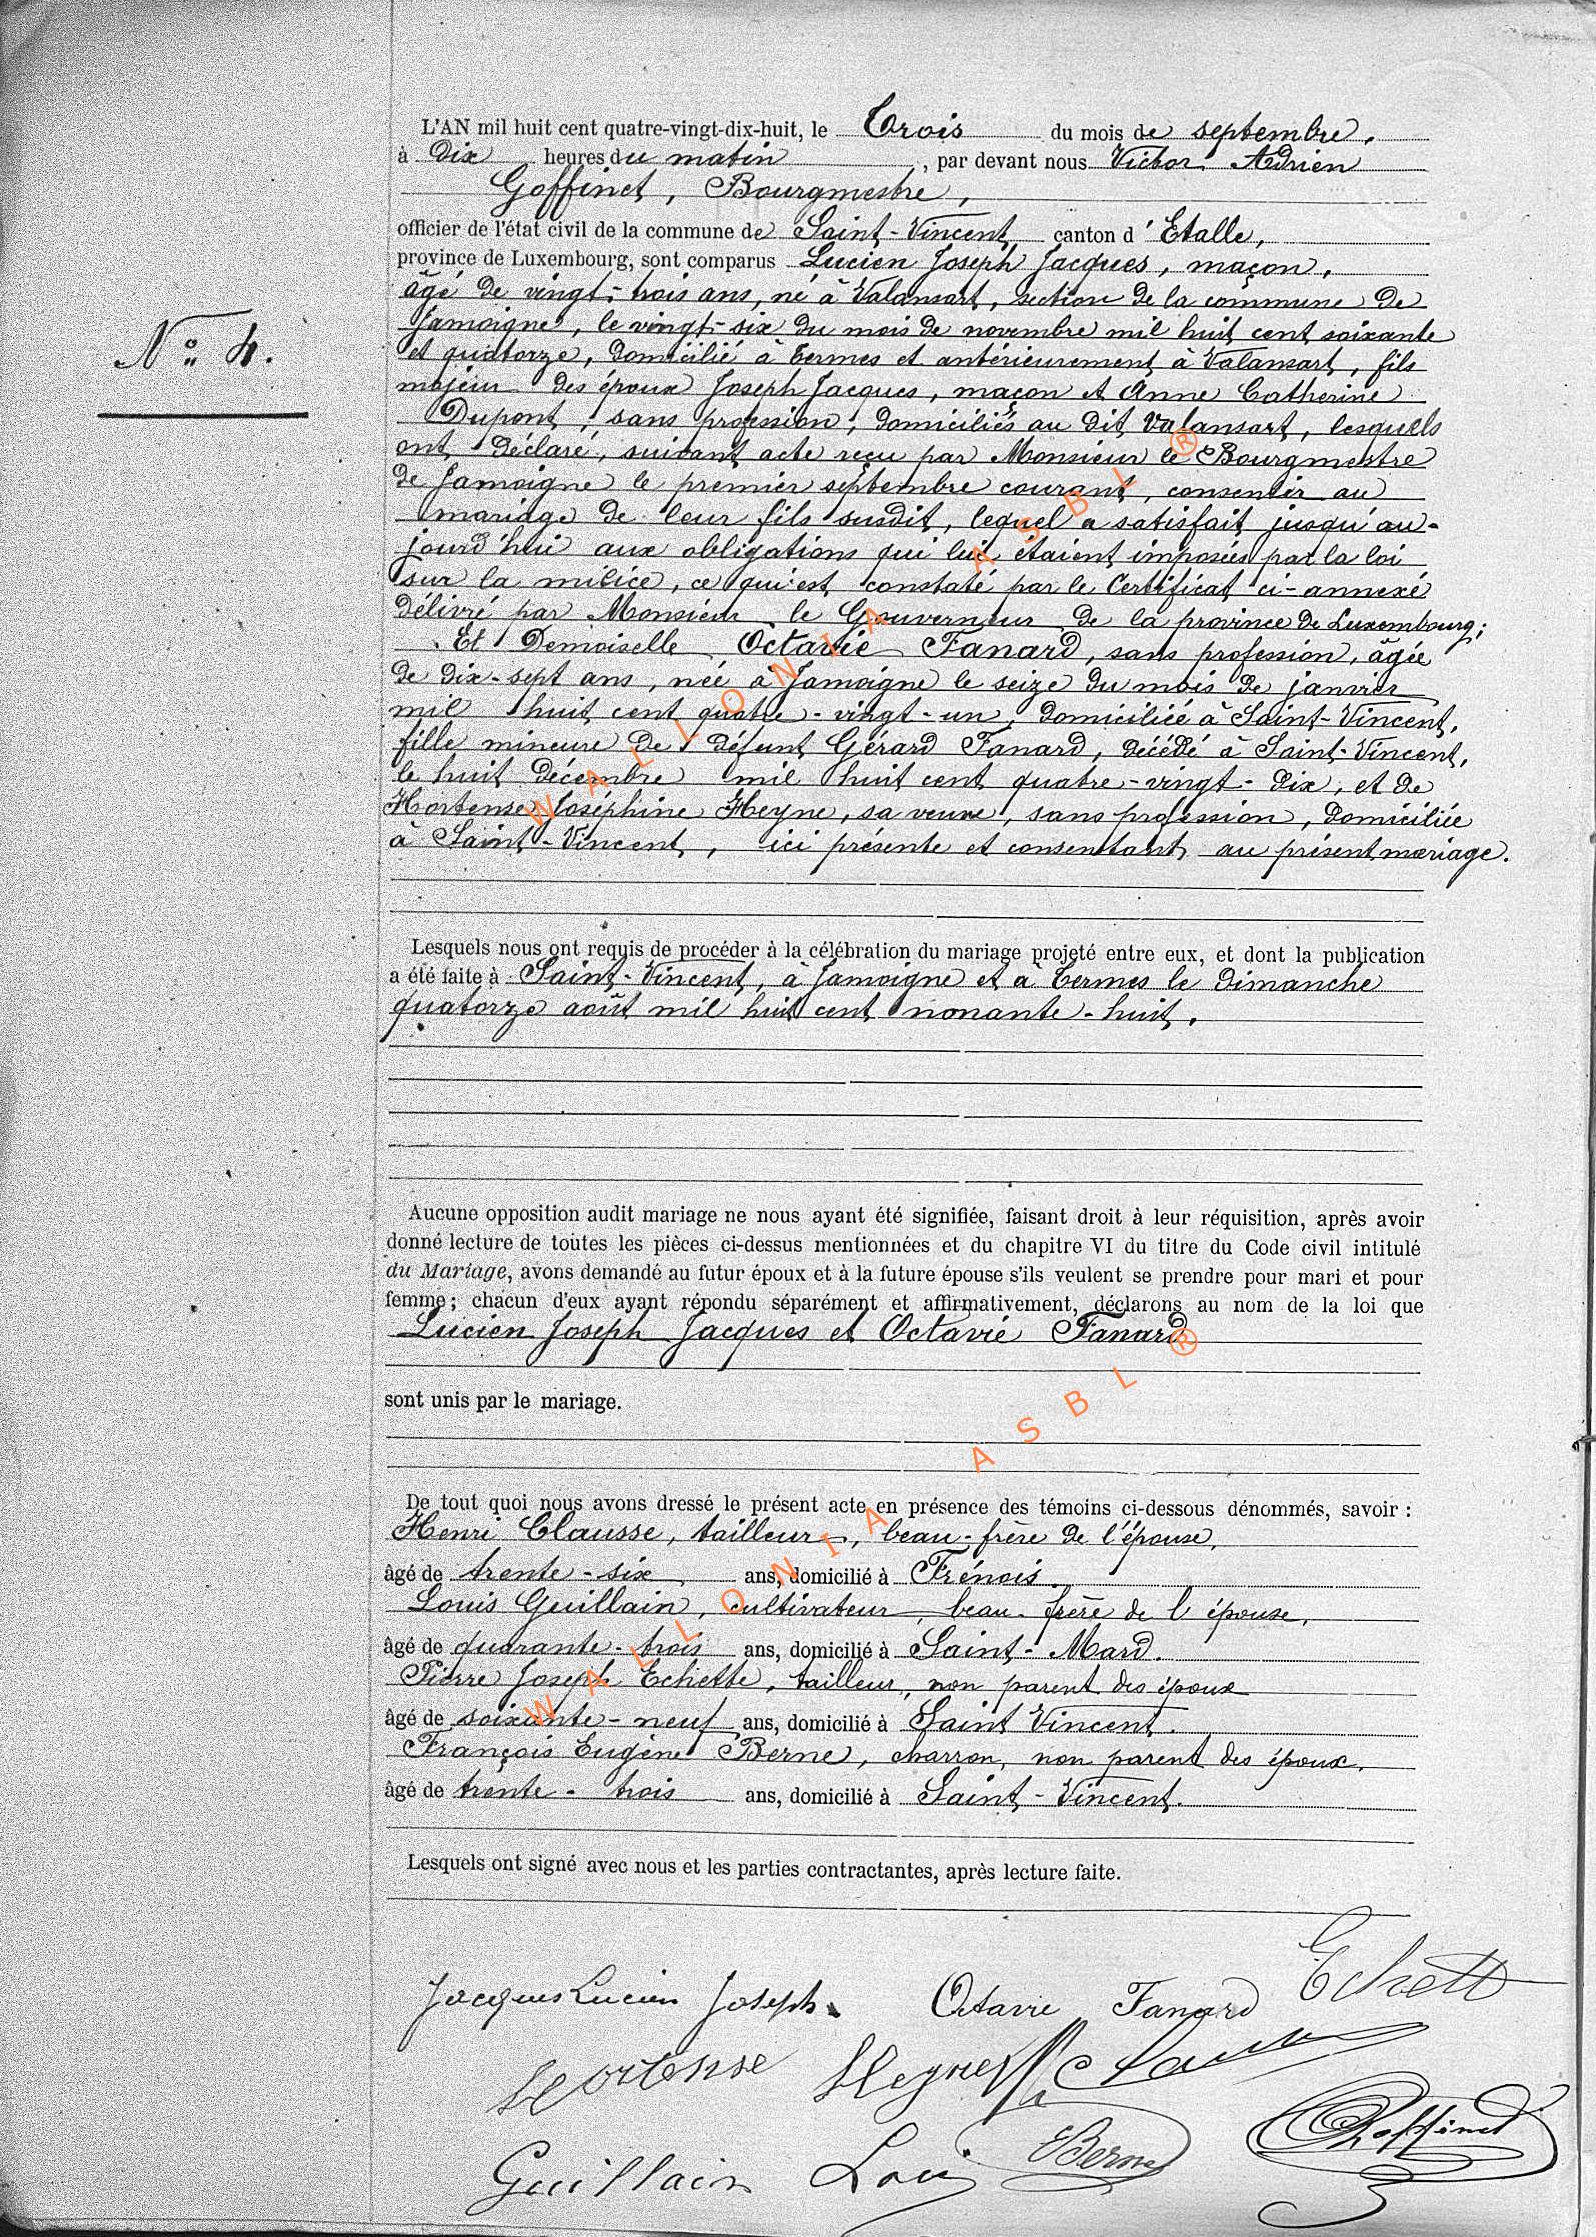 L'AN mil huit cent quatre-vingt-dix-huit, le Trois du mois de septembre,
à Dix heures du matin, par devant nous Victor Adrien
Goffinet, Bourgmestre,
officier de l'état civil de la commune de Saint-Vincent canton d'Etalle,
province de Luxembourg, sont comparus Lucien Joseph Jacques, maçon,
âgé de vingt-trois ans, né à Valansart, section de la commune de
Jamoigne, le vingt-six du mois de novembre mil huit cent soixante
et quatorze, domicilié à Termes et antérieurement à Valansart, fils
majeur des époux Joseph Jacques, maçon et Anne Catherine
Dupont, sans profession, domiciliés au dit Valansart, lesquels
ont déclaré, suivant acte reçu par Monsieur le Bourgmestre
de Jamoigne le premier septembre courant, consentir au
mariage de leur fils susdit, lequel a satisfait jusqu'au-
jourd'hui aux obligations qui lui étaient imposées par la loi
sur la milice, ce qui est constaté par le Certificat ci-annexé
délivré par Monsieur le Gouverneur de la province de Luxembourg;
Et Demoiselle Octavie Fanard, sans profession, âgée
de dix-sept ans, née à Jamoigne le seize du mois de janvier
mil huit cent quatre-vingt-un, domiciliée à Saint-Vincent,
fille mineure de défunt Gérard Fanard, décédé à Saint-Vincent,
le huit décembre mil huit cent quatre-vingt-dix, et de
Hortense Joséphine Heyne, sa veuve, sans profession, domiciliée
à Saint-Vincent, ici présente et consentant au présent mariage.
Lesquels nous ont requis de procéder à la célébration du mariage projeté entre eux, et dont la publication
a été faite à Saint-Vincent, à Jamoigne et à Termes le dimanche
quatorze août mil huit cent nonante-huit.
Aucune opposition audit mariage ne nous ayant été signifiée, faisant droit à leur réquisition, après avoir
donné lecture de toutes les pièces ci-dessus mentionnées et du chapitre VI du titre du Code civil intitulé
du Mariage, avons demandé au futur époux et à la future épouse s'ils veulent se prendre pour mari et pour
femme; chacun d'eux ayant répondu séparément et affirmativement, déclarons au nom de la loi que
Lucien Joseph Jacques et Octavie Fanard
sont unis par le mariage.
De tout quoi nous avons dressé le présent acte en présence des témoins ci-dessous dénommés, savoir :
Henri Clausse, tailleur, beau-frère de l'épouse,
âgé de trente-six ans, domicilié à Frénois.
Louis Guillain, cultivateur, beau-frère de l'épouse,
âgé de quarante-trois ans, domicilié à Saint-Mard.
Pierre Joseph Echette, tailleur, non parent des époux
âgé de soixante-neuf ans, domicilié à Saint Vincent.
François Eugène Berne, charron, non parent des époux,
âgé de trente-trois ans, domicilié à Saint-Vincent.
Lesquels ont signé avec nous et les parties contractantes, après lecture faite.
Nº 4.
Jacques Lucien Joseph. Octavie Fanard Echette
Hortense Heyne Clausse
Guillain Loui EBerne Goffinet
WALLONIA ASBL ®
WALLONIA ASBL ®